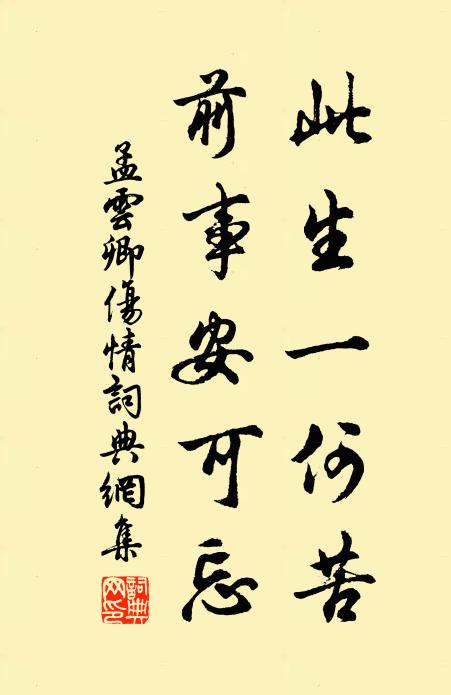 此生一何苦
前事安可忘
孟雲卿傷情詞典網集
詞典網印